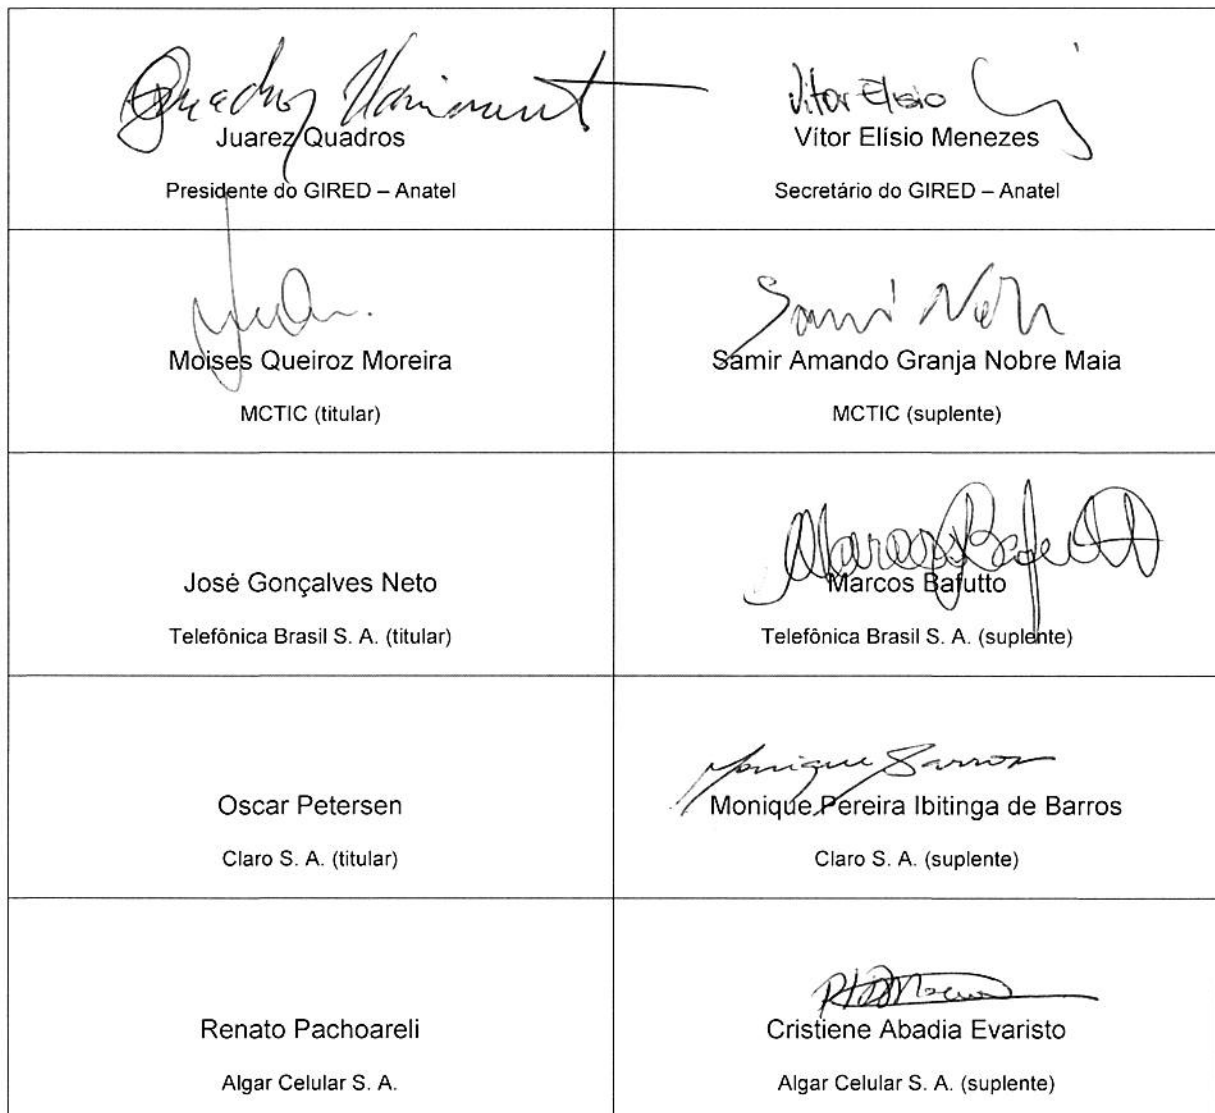 Quadros Nascimento
Juarez Quadros
Presidente do GIRED – Anatel
Vitor Elisio
Vítor Elísio Menezes
Secretário do GIRED – Anatel
Moises Queiroz Moreira
MCTIC (titular)
Samir
Samir Amando Granja Nobre Maia
MCTIC (suplente)
José Gonçalves Neto
Telefônica Brasil S. A. (titular)
Marcos Bafutto
Marcos Bafutto
Telefônica Brasil S. A. (suplente)
Oscar Petersen
Claro S. A. (titular)
Monique Barros
Monique Pereira Ibitinga de Barros
Claro S. A. (suplente)
Renato Pachoareli
Algar Celular S. A.
Cristiene Abadia Evaristo
Algar Celular S. A. (suplente)